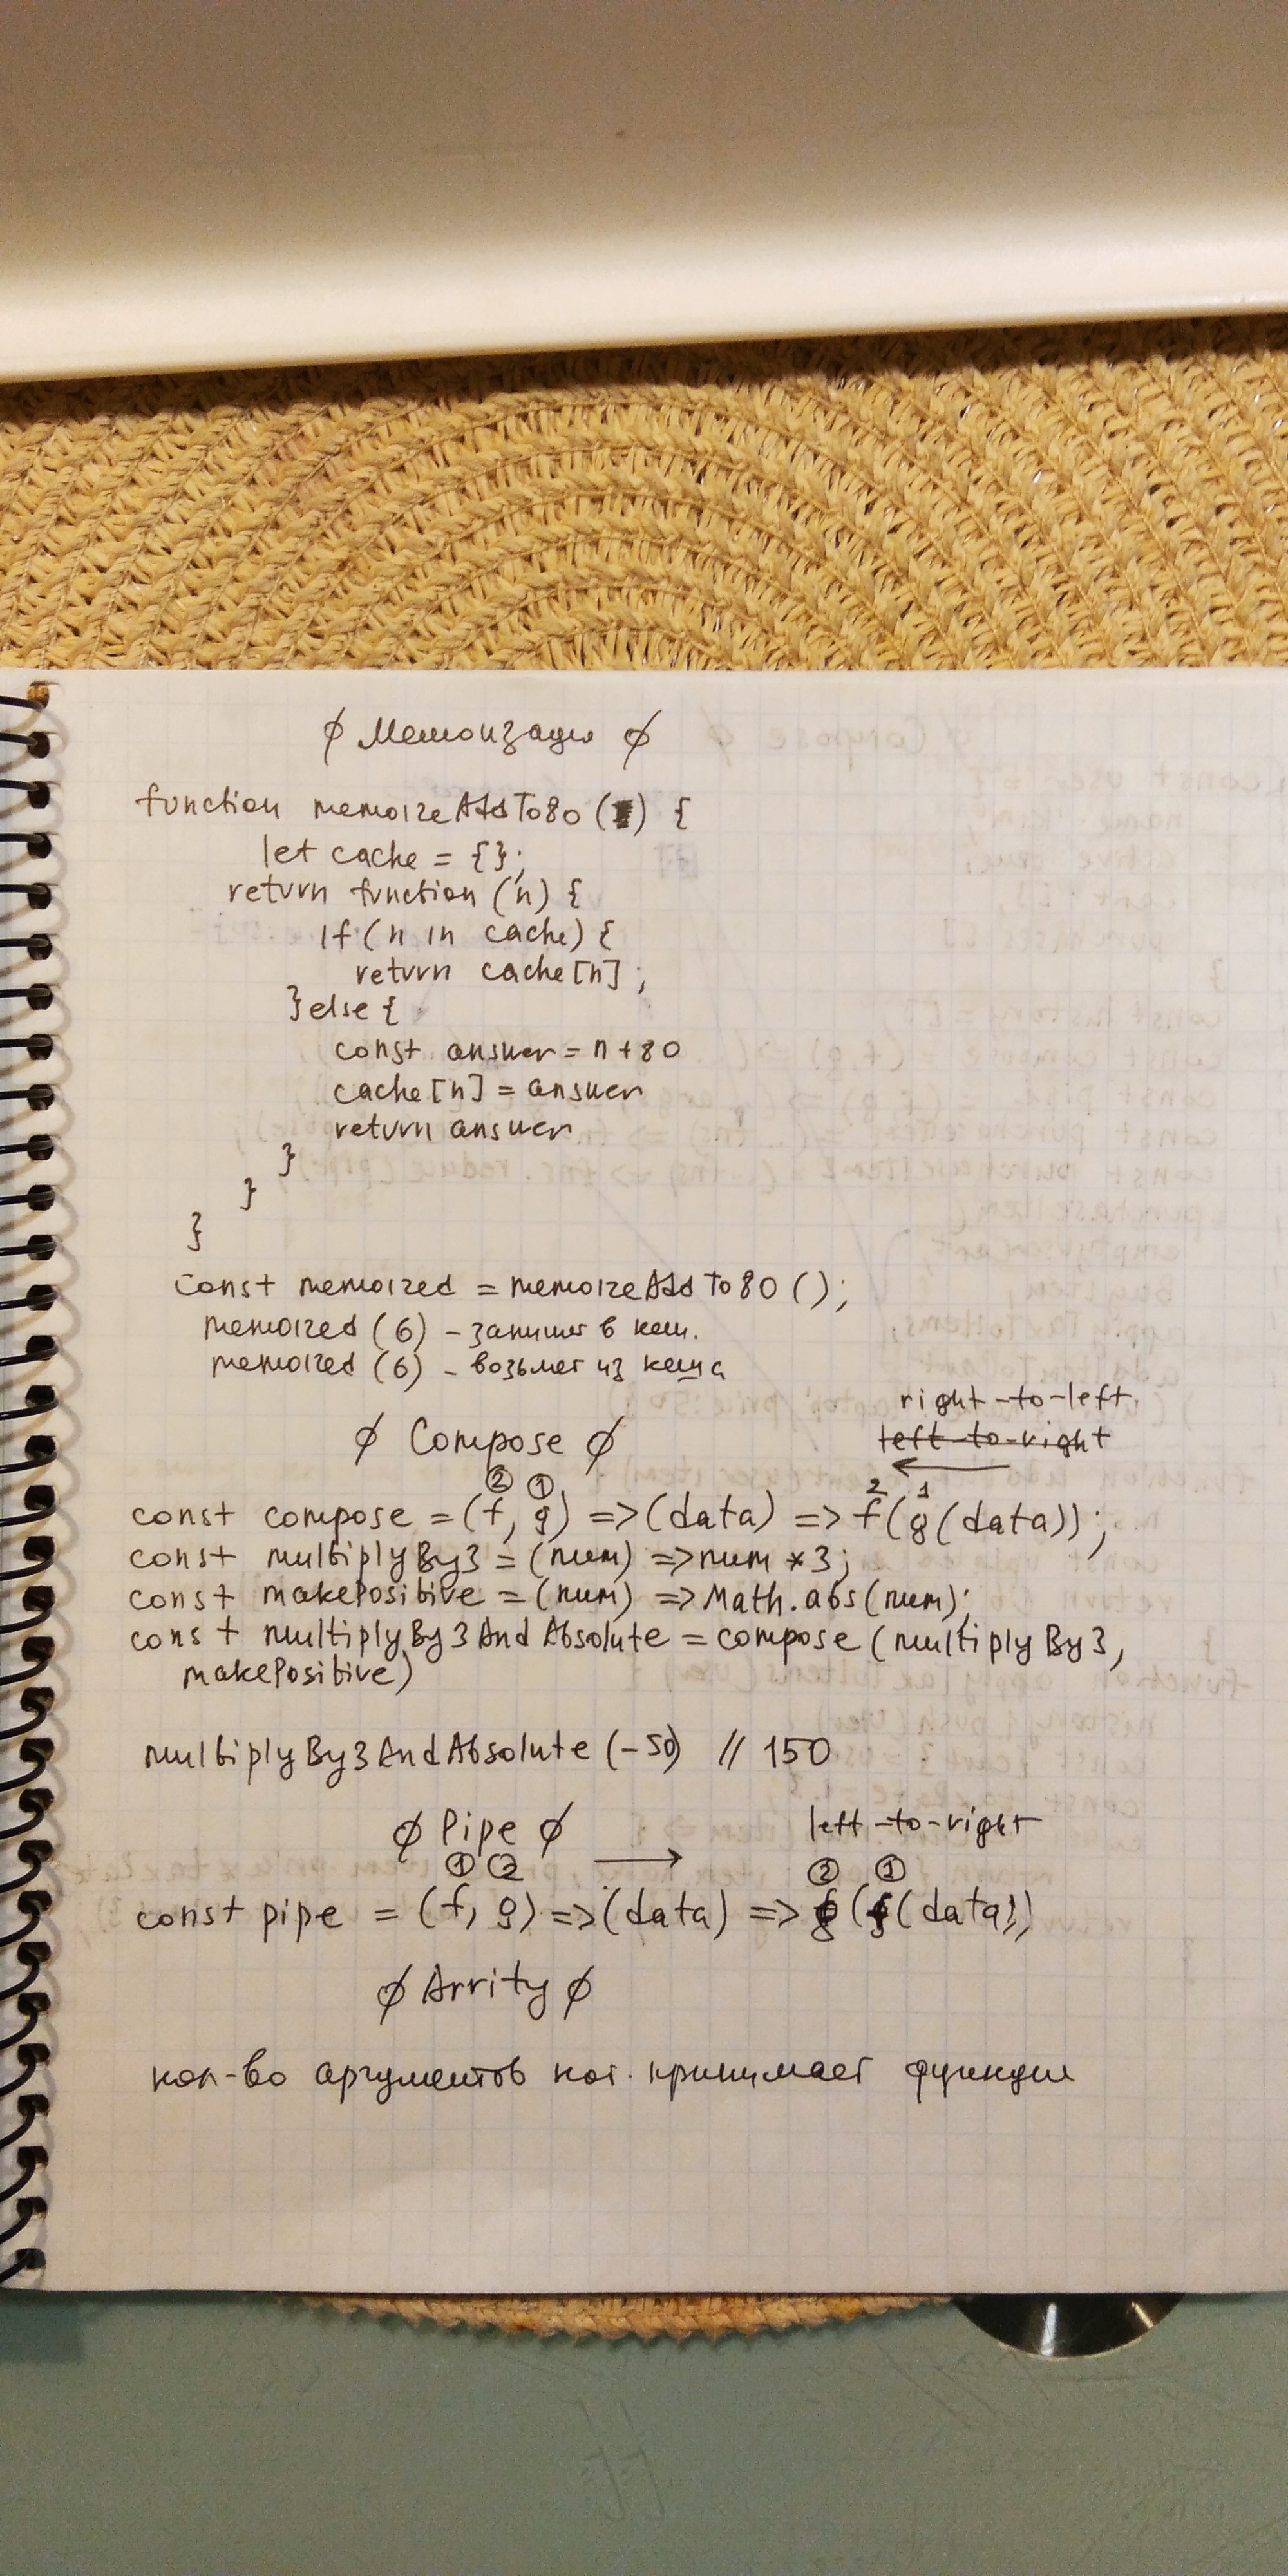 ∅ Мемоизация ∅
function memoizeAddTo80 () {
let cache = {};
return function (n) {
if (n in cache) {
return cache[n];
} else {
const answer = n + 80
cache[n] = answer
return answer
}
}
}
const memoized = memoizeAddTo80 ();
memoized (6) - запишет в кеш.
memoized (6) - возьмет из кеша
right-to-left
∅ Compose ∅ left-to-right
② ① ← 2 1
const compose = (f, g) => (data) => f(g(data));
const multiplyBy3 = (num) => num * 3;
const makePositive = (num) => Math.abs(num);
const multiplyBy3AndAbsolute = compose (multiplyBy3,
makePositive)
multiplyBy3AndAbsolute (-50) // 150
∅ Pipe ∅ left-to-right
① ② → ② ①
const pipe = (f, g) => (data) => g(f(data))
∅ Arrity ∅
кол-во аргументов кот. принимает функция